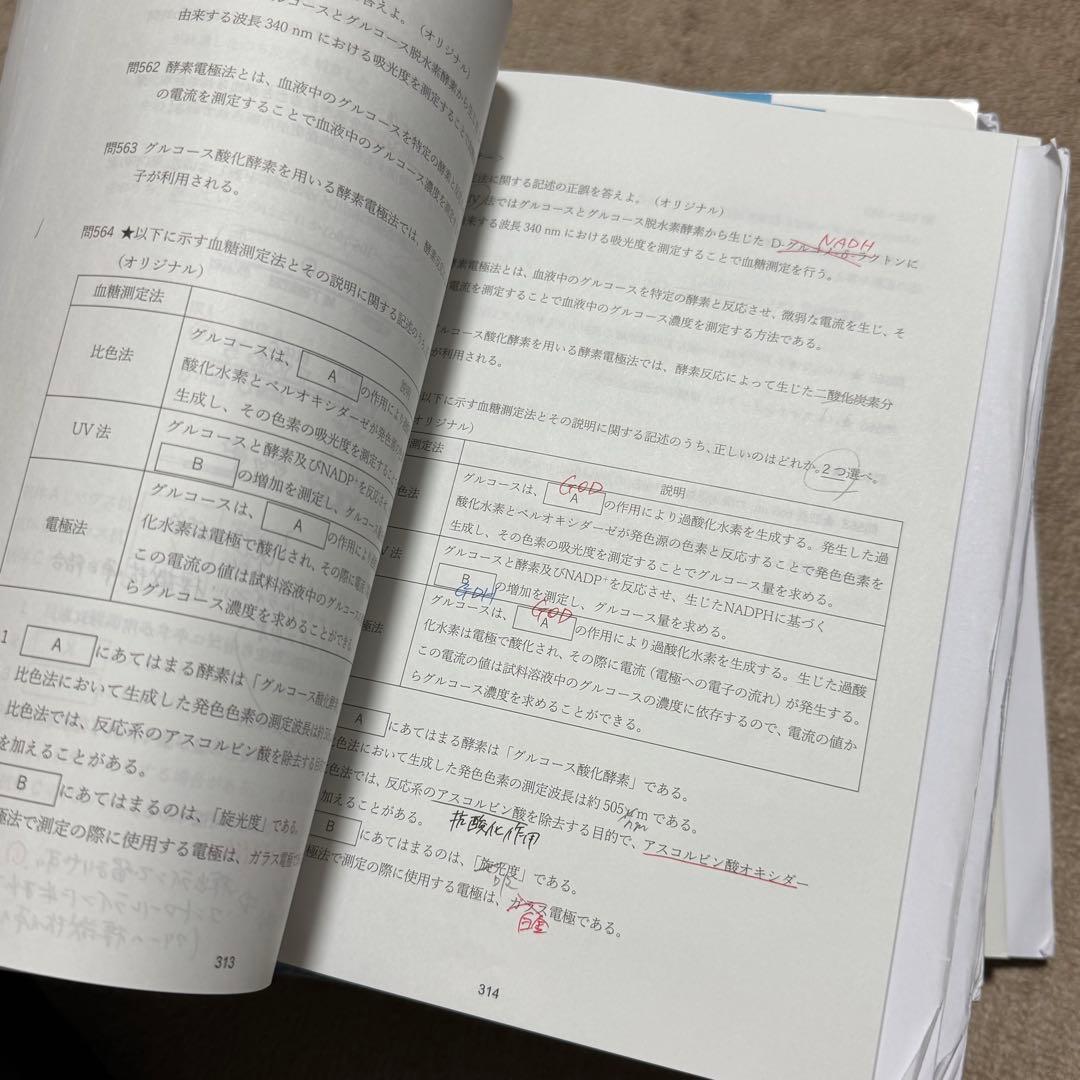 答えよ。(オリジナル)
ルコースとグルコース脱水素酵素から生
由来する波長 340 nm における吸光度を測定することで
問562 酵素電極法とは、血液中のグルコースを特定の酵素と反応
の電流を測定することで血液中のグルコース濃度を測定
問563 グルコース酸化酵素を用いる酵素電極法では、酵素反応
子が利用される。
問564 ★以下に示す血糖測定法とその説明に関する記述のうち、
(オリジナル)
血糖測定法
説明
比色法
グルコースは、 A の作用により過
酸化水素とペルオキシダーゼが発色源の
生成し、その色素の吸光度を測定すること
UV 法
グルコースと酵素及びNADP⁺を反応させ
B の増加を測定し、グルコース
電極法
グルコースは、 A の作用により
化水素は電極で酸化され、その際に電流
この電流の値は試料溶液中のグルコース
らグルコース濃度を求めることができる
1 A にあてはまる酵素は「グルコース酸化酵
比色法において生成した発色色素の測定波長は約50
比色法では、反応系のアスコルビン酸を除去する目
を加えることがある。
B にあてはまるのは、「旋光度」である。
極法で測定の際に使用する電極は、ガラス電極
313
法に関する記述の正誤を答えよ。(オリジナル)
法ではグルコースとグルコース脱水素酵素から生じた D-グルコノ-δ-ラクトンに
NADH
来する波長 340 nm における吸光度を測定することで血糖測定を行う。
酵素電極法とは、血液中のグルコースを特定の酵素と反応させ、微弱な電流を生じ、そ
電流を測定することで血液中のグルコース濃度を測定する方法である。
ルコース酸化酵素を用いる酵素電極法では、酵素反応によって生じた二酸化炭素分
が利用される。
以下に示す血糖測定法とその説明に関する記述のうち、正しいのはどれか。2 つ選べ。
オリジナル)
測定法
説明
色法
GOD
グルコースは、 A の作用により過酸化水素を生成する。発生した過
酸化水素とペルオキシダーゼが発色源の色素と反応することで発色色素を
生成し、その色素の吸光度を測定することでグルコース量を求める。
V 法
グルコースと酵素及びNADP⁺を反応させ、生じたNADPHに基づく
B の増加を測定し、グルコース量を求める。
GDH
極法
GOD
グルコースは、 A の作用により過酸化水素を生成する。生じた過酸
化水素は電極で酸化され、その際に電流 (電極への電子の流れ) が発生する。
この電流の値は試料溶液中のグルコースの濃度に依存するので、電流の値か
らグルコース濃度を求めることができる。
A にあてはまる酵素は「グルコース酸化酵素」である。
比色法において生成した発色色素の測定波長は約 505 μm である。
nm
色法では、反応系のアスコルビン酸を除去する目的で、アスコルビン酸オキシダー
加えることがある。
抗酸化作用
B にあてはまるのは、「旋光度」である。
極法で測定の際に使用する電極は、ガラス電極である。
白金
314